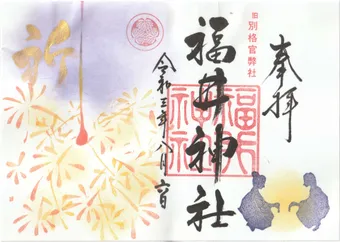 奉拝
旧別格官幣社
福井神社
福井神社
令和三年八月六日
祈